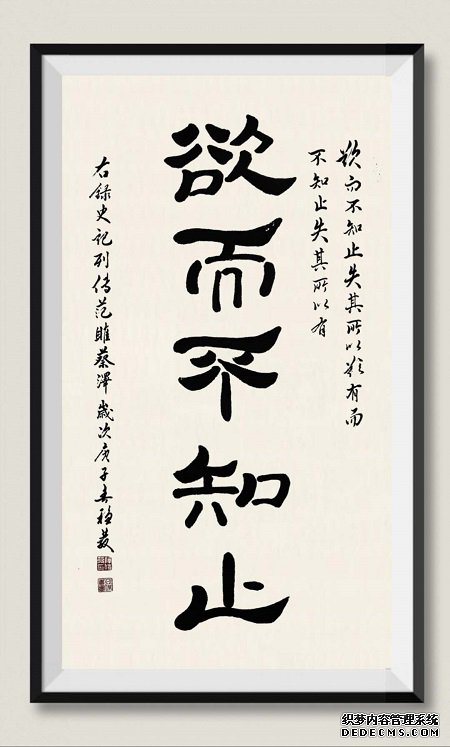 欲而不知止失其所以欲有而
不知止失其所以有
欲而不知止
右録史记列传范雎蔡泽歲次庚子春
织梦内容管理系统
DEDECMS.COM